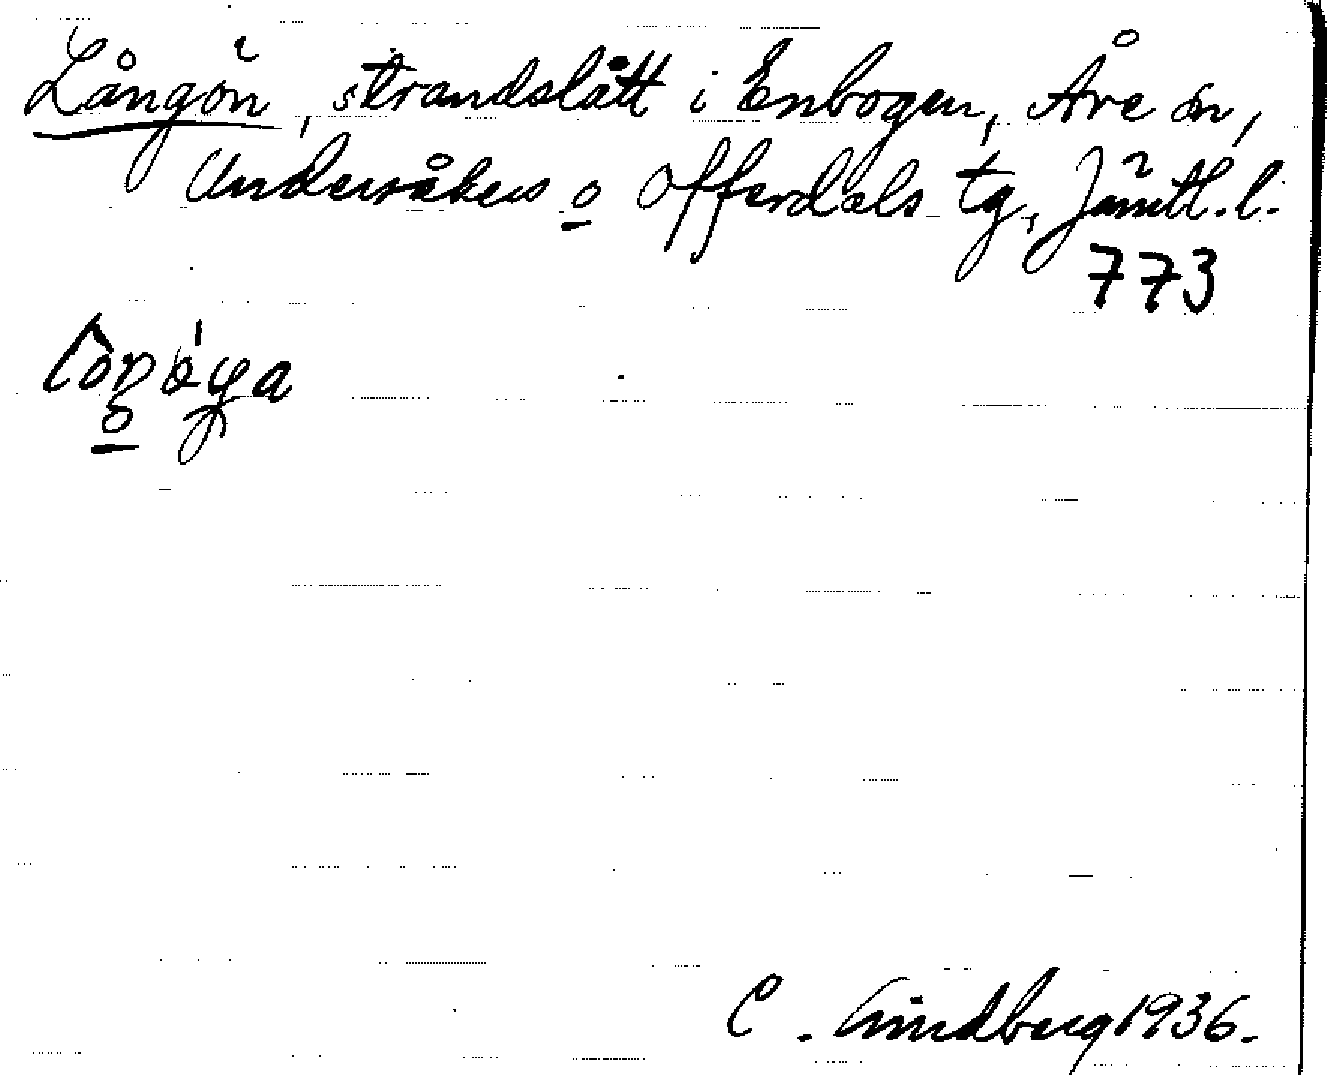 Långön, strandslått i Enbogen, Åre sn,
Undersåkers o Offerdals tg, Jämtl. l.
773
C. Lindberg 1936.